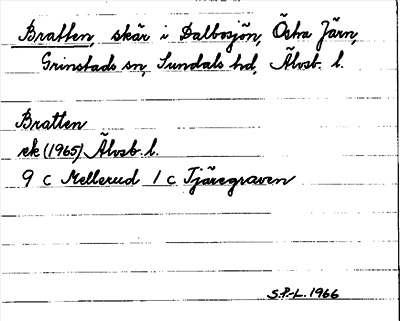 Bratten, skär i Dalbosjön, Östra Järn,
Grinstads sn, Sundals hd, Älvsb. l.
Bratten
ek (1965) Älvsb. l.
9 C Mellerud 1 c Tjäregraven
S.P-L. 1966